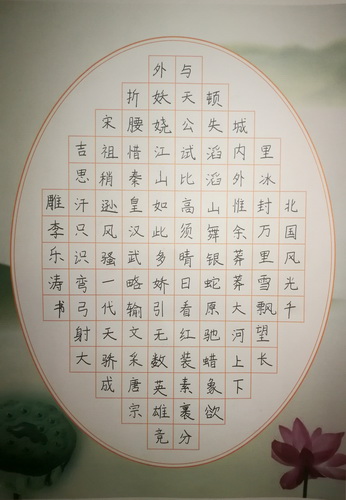 北国风光千
里冰封万里雪飘望长
城内外惟余莽莽大河上下
顿失滔滔山舞银蛇原驰蜡象欲
与天公试比高须晴日看红装素裹分
外妖娆江山如此多娇引无数英雄竞
折腰惜秦皇汉武略输文采唐宗
宋祖稍逊风骚一代天骄成
吉思汗只识弯弓射大
雕李乐涛书